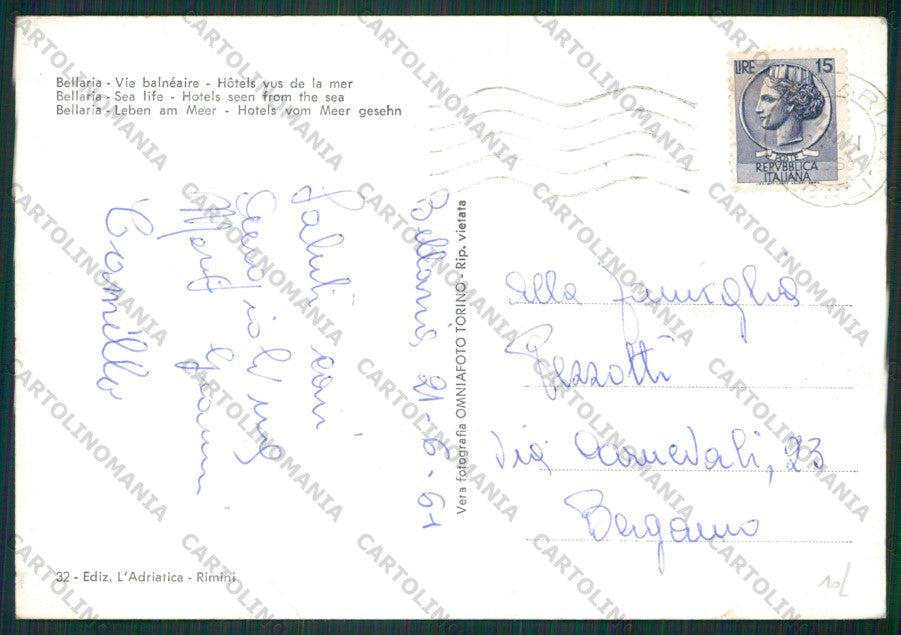 Bellaria - Vie balnéaire - Hôtels vus de la mer
Bellaria - Sea life - Hotels seen from the sea
Bellaria - Leben am Meer - Hotels vom Meer gesehn
LIRE 15
POSTE
REPVBBLICA
ITALIANA
Bellaria, 21-6-61
Saluti cari
Camillo
Vera fotografia OMNIAFOTO TORINO - Rip. vietata
Alla Famiglia
Pezzotti
Via Carnovali, 23
Bergamo
32 - Ediz. L'Adriatica - Rimini
CARTOLINOMANIA